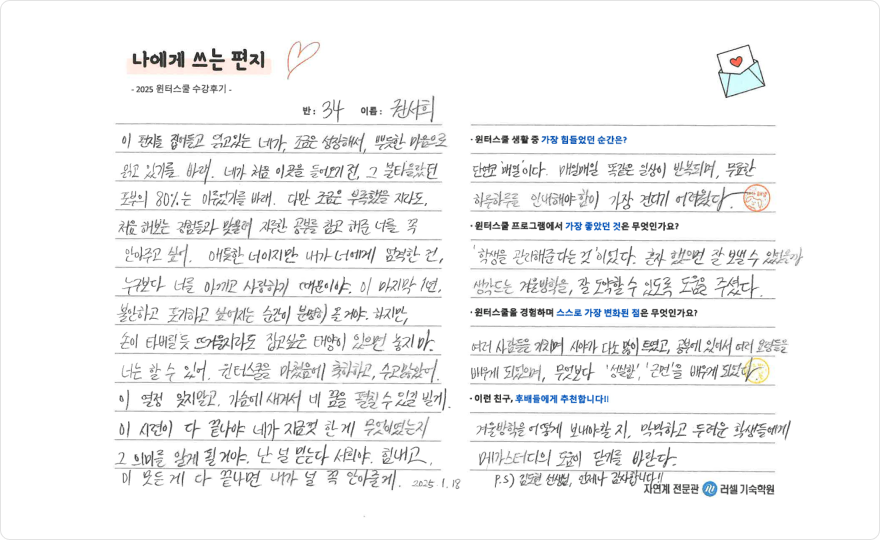 나에게 쓰는 편지
- 2025 윈터스쿨 수강후기 -
반 : 34 이름 : 권서희
이 편지를 집어들고 읽고있는 네가, 조금은 성장해서, 뿌듯한 마음으로
읽고 있기를 바래. 네가 처음 이곳을 들어오기 전, 그 불타올랐던
포부의 80%는 이루었기를 바래. 다만 조금은 부족했을 지라도,
처음 해보는 경험들과 맞물려 지루한 공부를 참고 해준 너를 꼭
안아주고 싶어. 애틋한 너이지만 내가 너에게 엄격한 건,
누구보다 너를 아끼고 사랑하기 때문이야. 이 마지막 1년,
불안하고 포기하고 싶어지는 순간이 분명히 올거야. 하지만,
손이 타버릴듯 뜨거울지라도 잡고싶은 태양이 있으면 놓지마.
너는 할 수 있어. 윈터스쿨을 마쳤음에 축하하고, 수고많았어.
이 열정 잊지말고, 가슴에 새겨서 네 꿈을 펼칠 수 있길 빌게.
이 시련이 다 끝나야 네가 지금껏 한 게 무엇이었는지
그 의미를 알게 될 거야. 난 널 믿는다 서희야. 힘내고,
이 모든 게 다 끝나면 내가 널 꼭 안아줄게. 2025.1.18
· 윈터스쿨 생활 중 가장 힘들었던 순간은?
단연코 '매일'이다. 매일매일 똑같은 일상이 반복되며, 무료한
하루하루를 인내해야 함이 가장 견디기 어려웠다.
· 윈터스쿨 프로그램에서 가장 좋았던 것은 무엇인가요?
'학생을 관리해준다는 것'이었다. 혼자 했으면 잘 보낼 수 있었을까
생각드는 겨울방학을, 잘 도약할 수 있도록 도움을 주셨다.
· 윈터스쿨을 경험하며 스스로 가장 변화된 점은 무엇인가요?
여러 사람들을 거치며 시야가 다소 많이 트였고, 공부에 있어서 여러 요령들을
배우게 되었으며, 무엇보다 '성실함', '근면'을 배우게 되었다.
· 이런 친구, 후배들에게 추천합니다!!
겨울방학을 어떻게 보내야할 지, 막막하고 두려운 학생들에게
메가스터디의 도움이 닿기를 바란다.
P.S) 김도현 선생님, 언제나 감사합니다!!
자연계 전문관 러셀 기숙학원